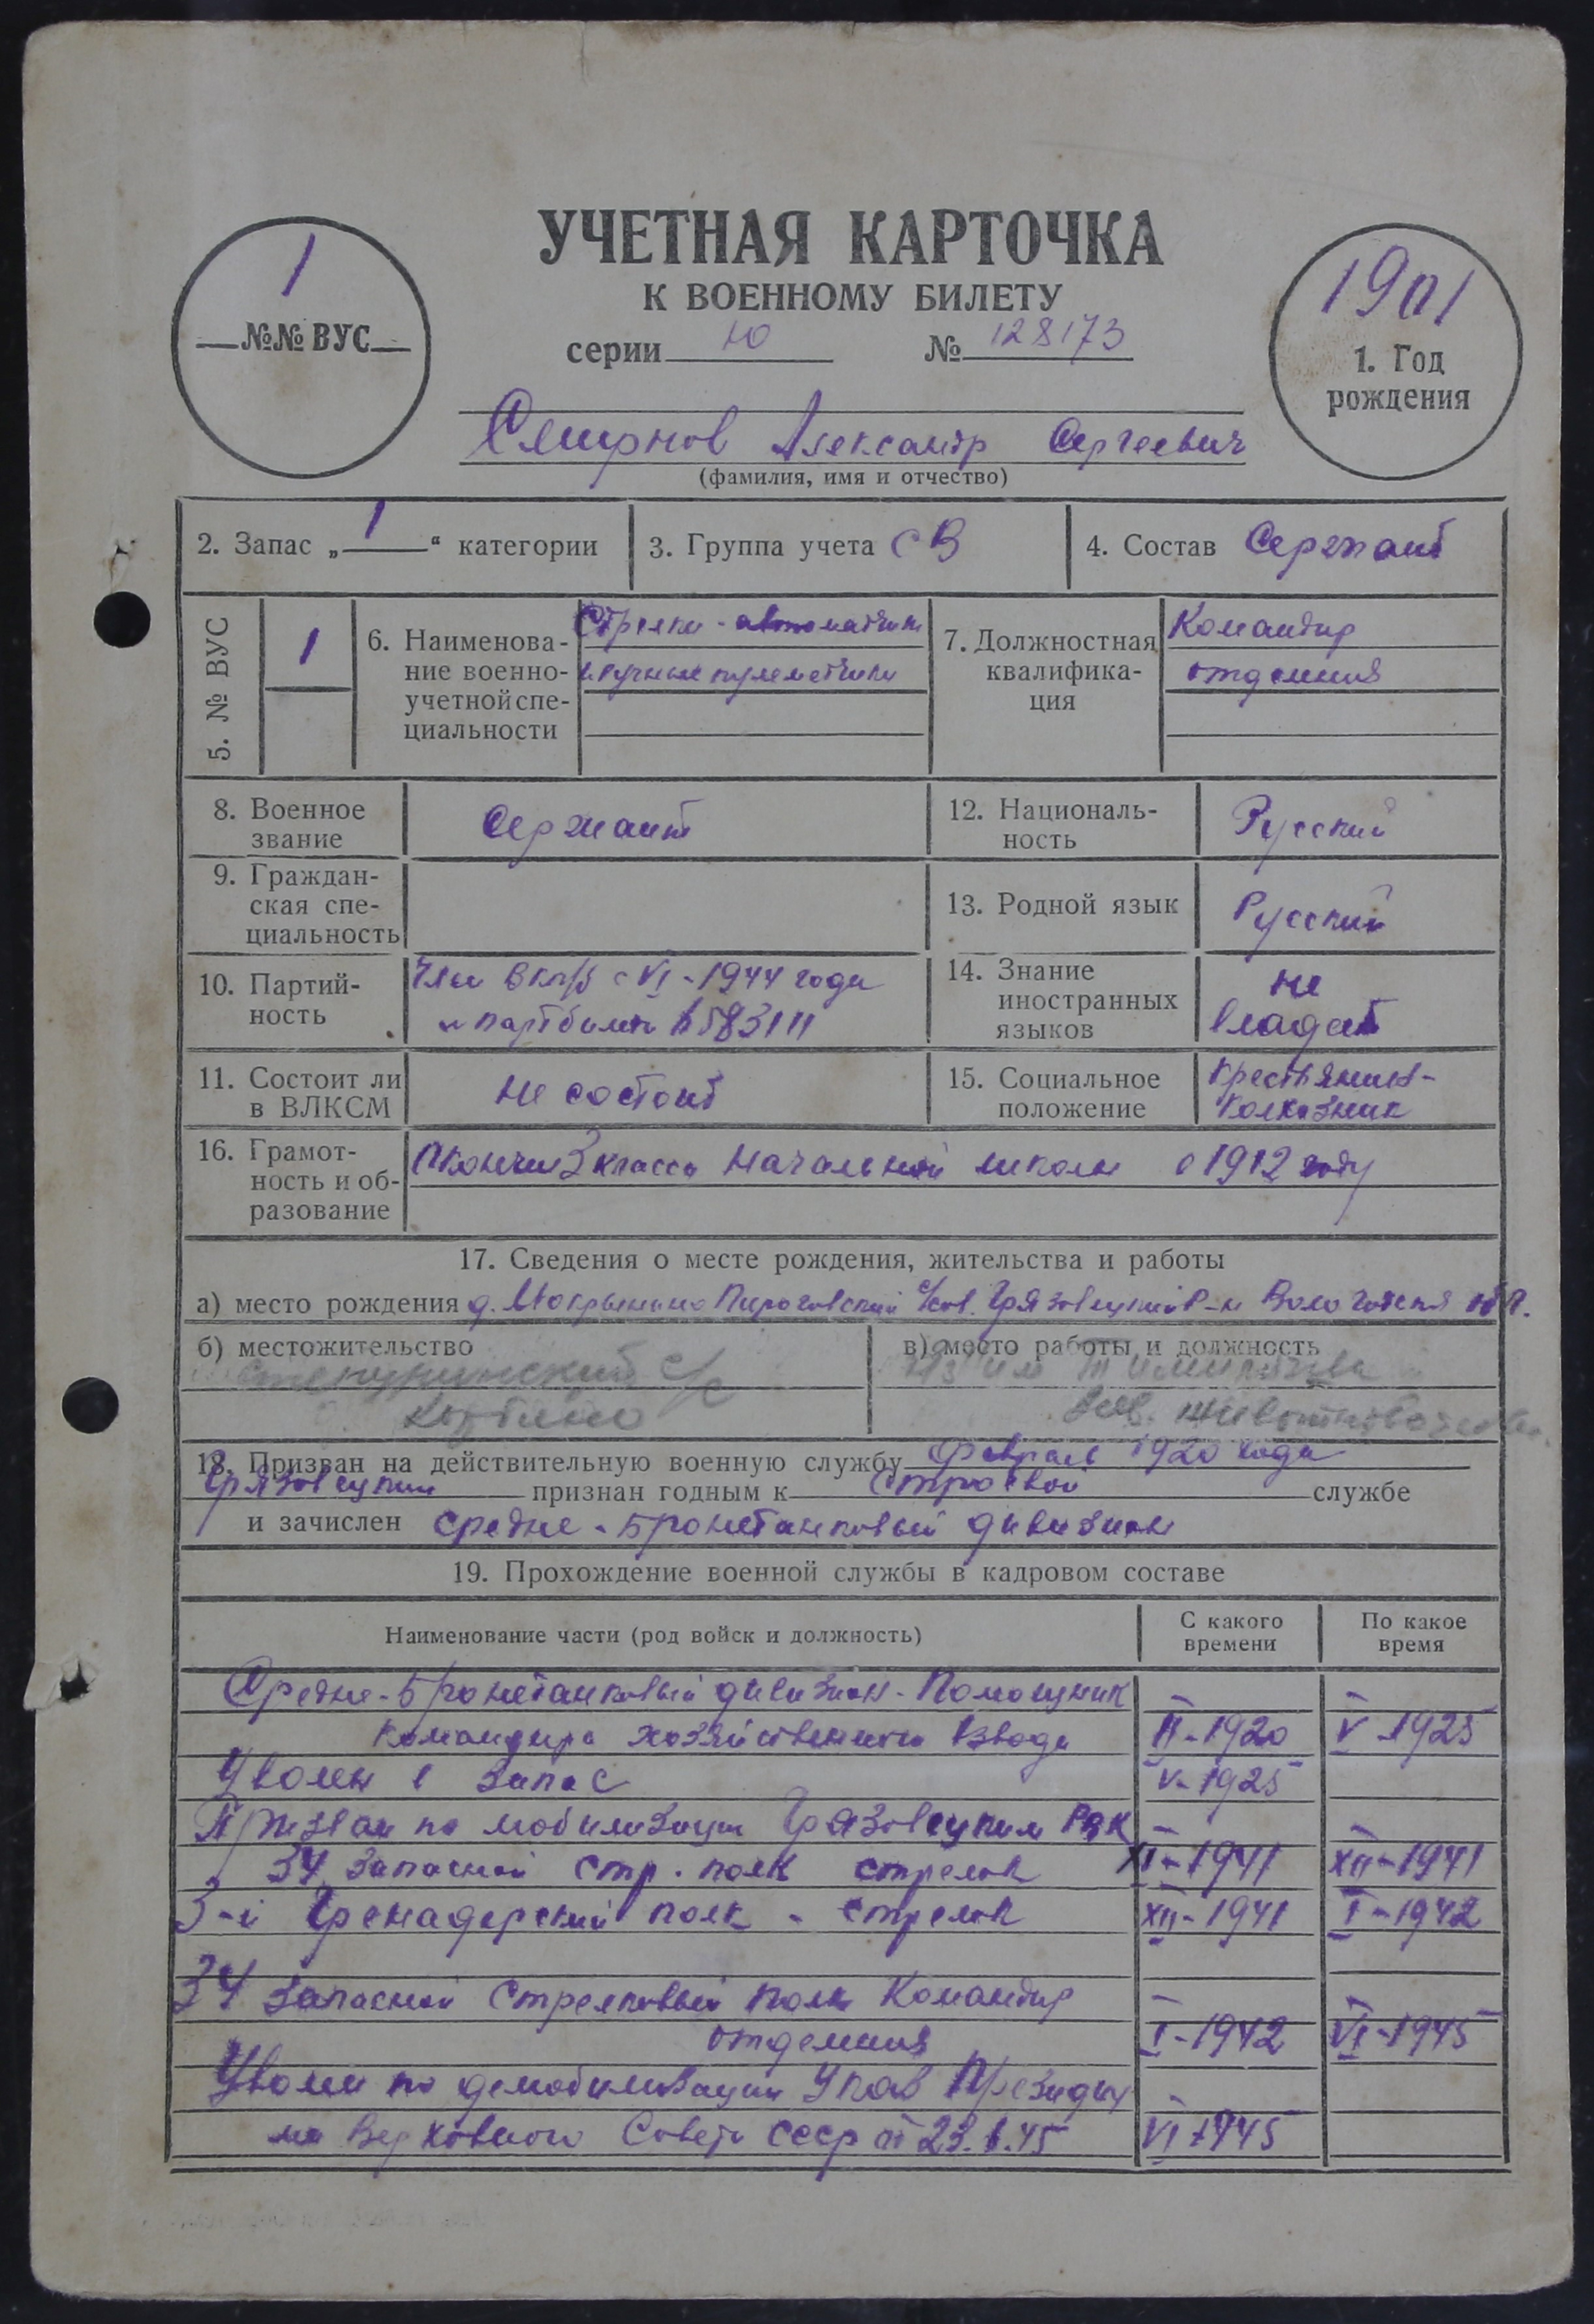 УЧЕТНАЯ КАРТОЧКА
К ВОЕННОМУ БИЛЕТУ
серии Ю № 128173
1
№№ ВУС
1901
1. Год
рождения
Смирнов Александр Сергеевич
(фамилия, имя и отчество)
2. Запас „1“ категории
3. Группа учета СВ
4. Состав Сержант
5. № ВУС
1
6. Наименова-
ние военно-
учетной спе-
циальности
Стрелки-автоматчики
и ручные пулеметчики
7. Должностная
квалифика-
ция
Командир
отделения
8. Военное
звание
Сержант
12. Националь-
ность
Русский
9. Граждан-
ская спе-
циальность
13. Родной язык
Русский
10. Партий-
ность
Член ВКП/б с VI-1944 года
14. Знание
иностранных
языков
не
владеет
11. Состоит ли
в ВЛКСМ
не состоит
15. Социальное
положение
Крестьянин-
колхозник
16. Грамот-
ность и об-
разование
Окончил 3 класса начальной школы в 1912 году
17. Сведения о месте рождения, жительства и работы
а) место рождения д. Мокрынино Пироговский с/сов. Грязовецкий р-н Вологодская обл.
б) местожительство
в) место работы и должность
с/с
им Тимирязева
Зав.
18. Призван на действительную военную службу Февраль 1920 года
Грязовецким признан годным к строевой службе
и зачислен Средне-Бронетанковый дивизион
19. Прохождение военной службы в кадровом составе
Наименование части (род войск и должность)
С какого
времени
По какое
время
Средне-Бронетанковый дивизион-Помощник
командира хозяйственного взвода II-1920 V-1925
Уволен в запас V-1925
Призван по мобилизации Грязовецким РВК
34 Запасной стр. полк стрелок XI-1941 XII-1941
3-й Гренадерский полк - стрелок XII-1941 I-1942
34 Запасной Стрелковый полк Командир
отделения I-1942 VI-1945
Уволен по демобилизации Указ Президиу
ма Верховного Совета СССР от 23.6.45 VI-1945